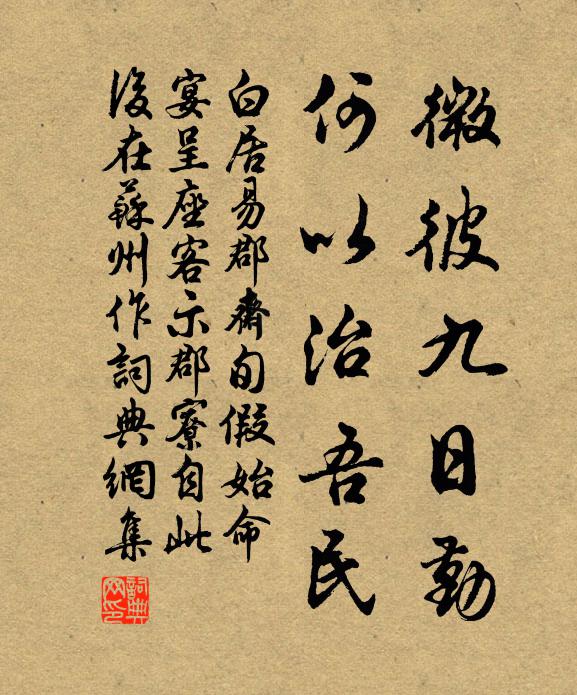 微彼九日勤
何以治吾民
白居易郡齋旬假始命
宴呈座客示郡寮自此
後在蘇州作詞典網集
詞典
网印